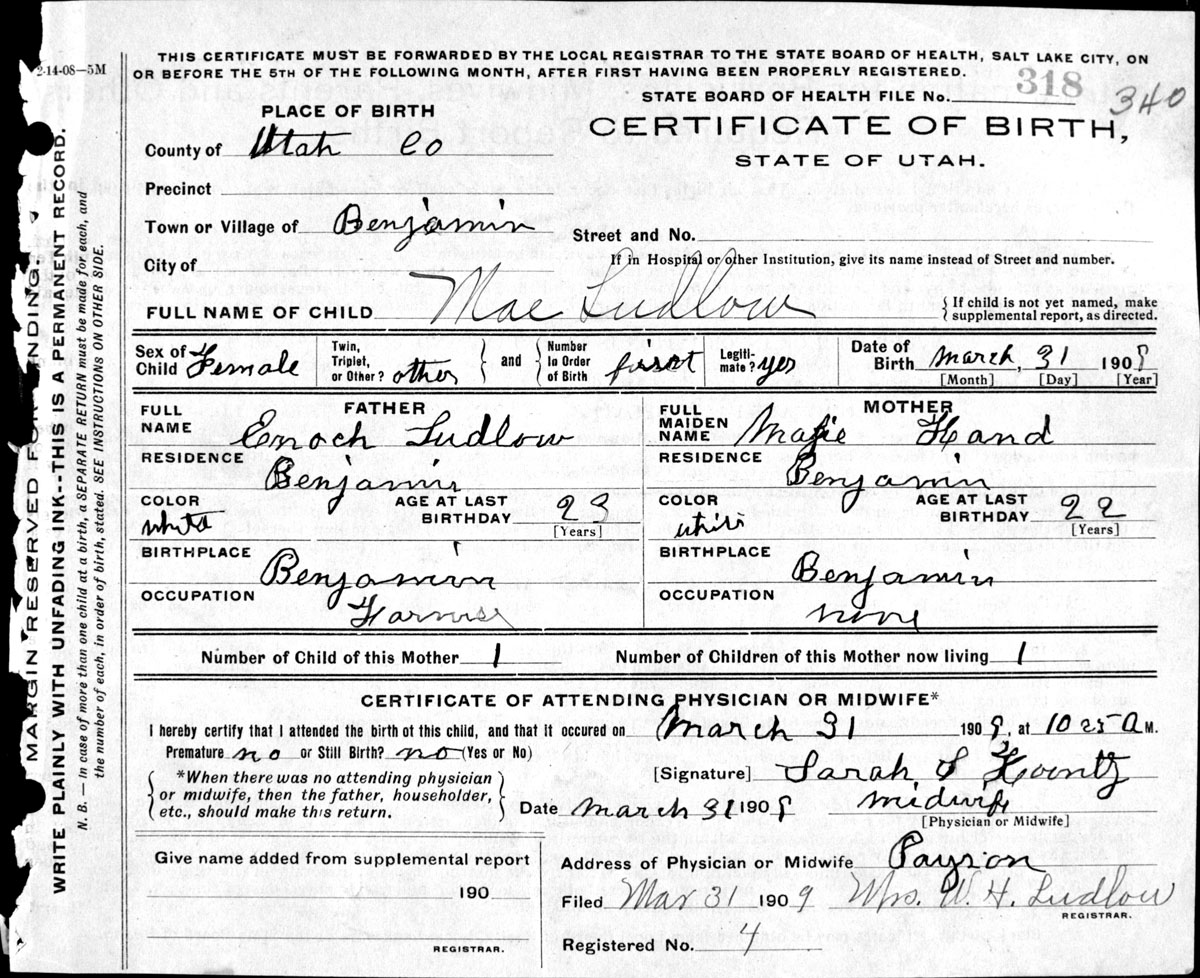 2-14-08—5M
THIS CERTIFICATE MUST BE FORWARDED BY THE LOCAL REGISTRAR TO THE STATE BOARD OF HEALTH, SALT LAKE CITY, ON
OR BEFORE THE 5TH OF THE FOLLOWING MONTH, AFTER FIRST HAVING BEEN PROPERLY REGISTERED.
STATE BOARD OF HEALTH FILE No. 318 340
PLACE OF BIRTH
CERTIFICATE OF BIRTH,
STATE OF UTAH.
County of Utah Co
Precinct
Town or Village of Benjamin
Street and No.
City of
If in Hospital or other Institution, give its name instead of Street and number.
FULL NAME OF CHILD Mae Ludlow
{ If child is not yet named, make
supplemental report, as directed.
Sex of Child Female
Twin, Triplet, or Other? other } and { Number In Order of Birth first
Legitimate? yes
Date of Birth March, 31 1909
[Month] [Day] [Year]
FATHER
FULL NAME Enoch Ludlow
RESIDENCE Benjamin
COLOR white AGE AT LAST BIRTHDAY 23
[Years]
BIRTHPLACE Benjamin
OCCUPATION Farmer
MOTHER
FULL MAIDEN NAME Hand
RESIDENCE Benjamin
COLOR white AGE AT LAST BIRTHDAY 22
[Years]
BIRTHPLACE Benjamin
OCCUPATION none
Number of Child of this Mother 1 Number of Children of this Mother now living 1
CERTIFICATE OF ATTENDING PHYSICIAN OR MIDWIFE*
I hereby certify that I attended the birth of this child, and that it occured on March 31 1909, at 10 25 A M.
Premature no or Still Birth? no (Yes or No)
{ *When there was no attending physician
or midwife, then the father, householder,
etc., should make this return. }
[Signature] Sarah S Koontz
Date March 31 1909 midwife
[Physician or Midwife]
Give name added from supplemental report
190
REGISTRAR.
Address of Physician or Midwife Payson
Filed Mar 31 1909 Mrs. W. H. Ludlow
REGISTRAR.
Registered No. 4
MARGIN RESERVED FOR BINDING.
WRITE PLAINLY WITH UNFADING INK--THIS IS A PERMANENT RECORD.
N. B. — In case of more than one child at a birth, a SEPARATE RETURN must be made for each, and
the number of each, in order of birth, stated. SEE INSTRUCTIONS ON OTHER SIDE.